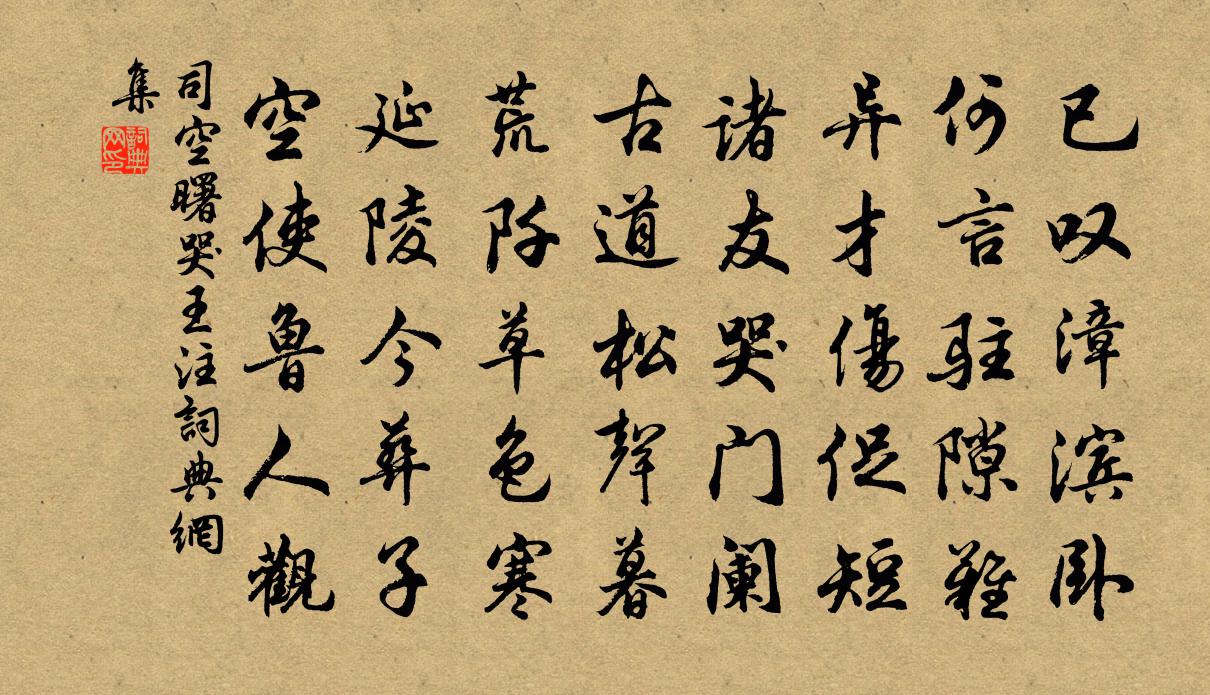 已叹漳滨卧
何言驻隙難
异才傷促短
诸友哭门阑
古道松聲暮
荒阡草色寒
延陵今葬子
空使鲁人觀
司空曙哭王注詞典網
集
詞典
网印